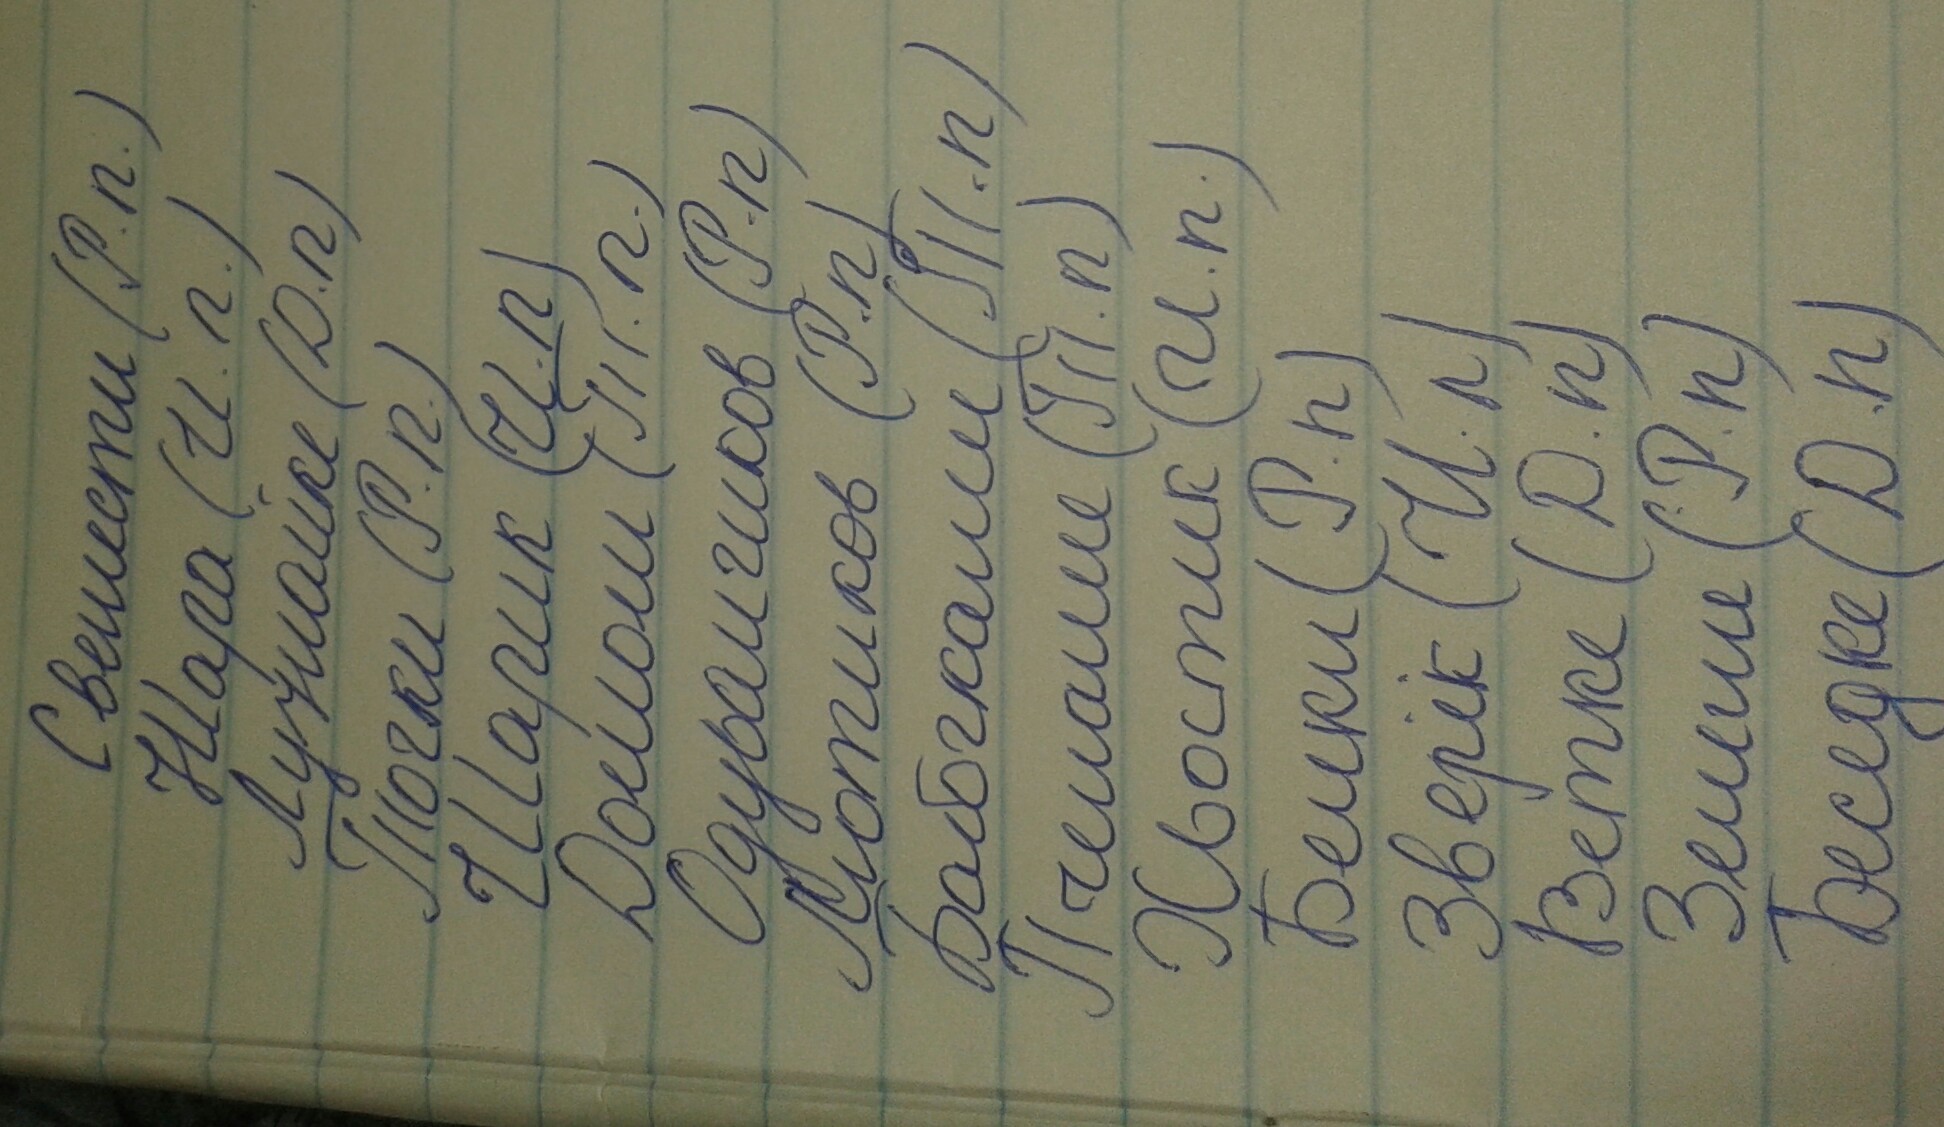 Свежести (Р.п.)
(И.п.)
Лужайке (Д.п)
(Р.п.)
Шарик (И.п)
Домом (Т.п.)
Одуванчиков (Р.п)
Лютиков (Р.п)
Бабочками (Т.п)
Пчелами (Т.п)
Хвостик (и.п.)
Белки (Р.п)
Зверёк (И.п)
Ветке (Д.п)
Земли (Р.п)
Беседке (Д.п)